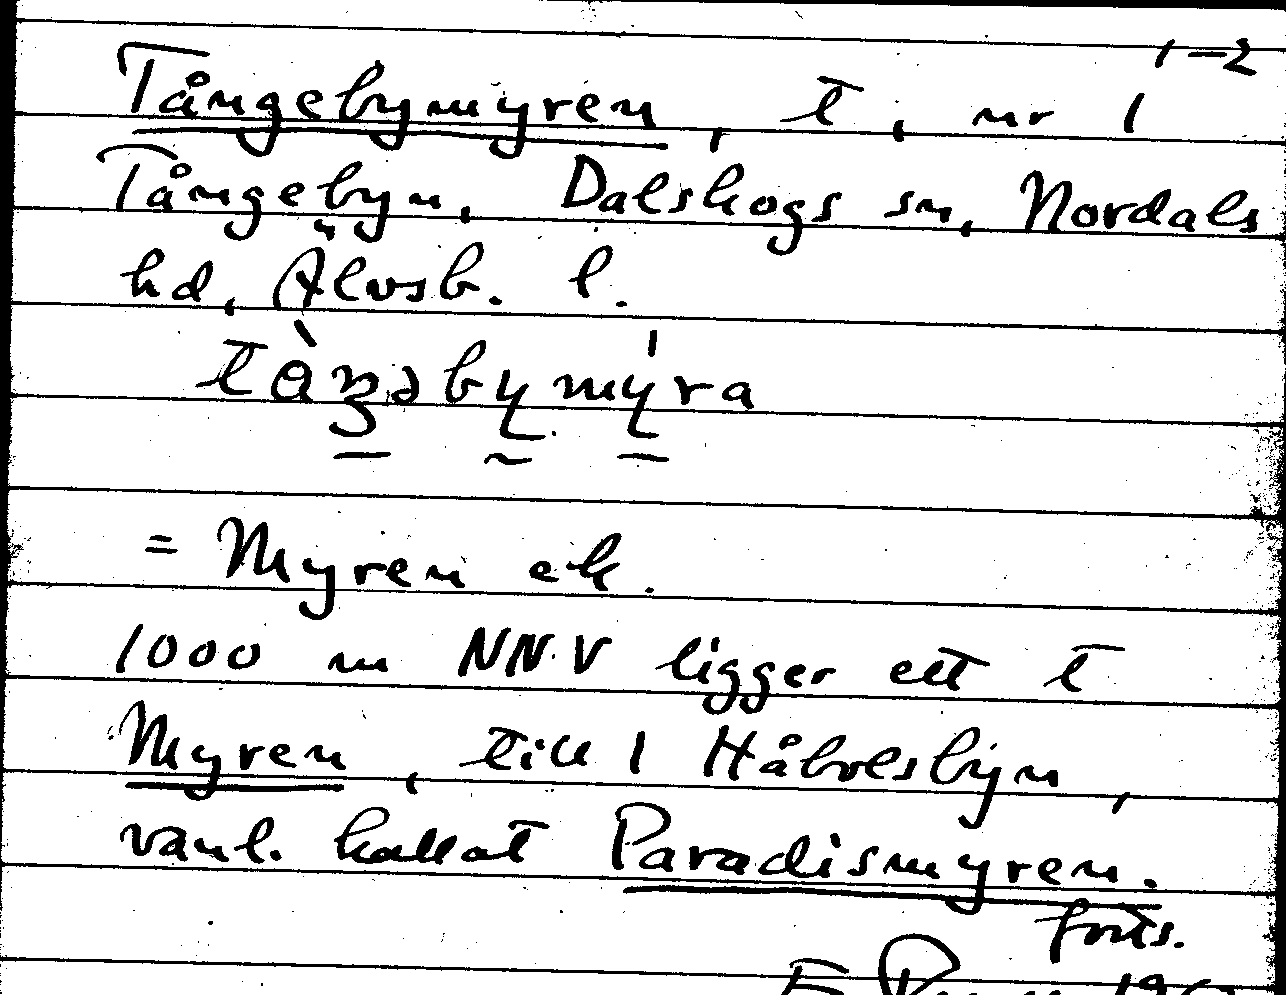 1-2
Tångebymyren, t, nr 1
Tångebyn, Dalskogs sn, Nordals
hd, Älvsb. l.
= Myren ek.
1000 m NNV ligger ett t
Myren, till 1 Hålvelsbyn,
vanl. kallat Paradismyren.
forts.